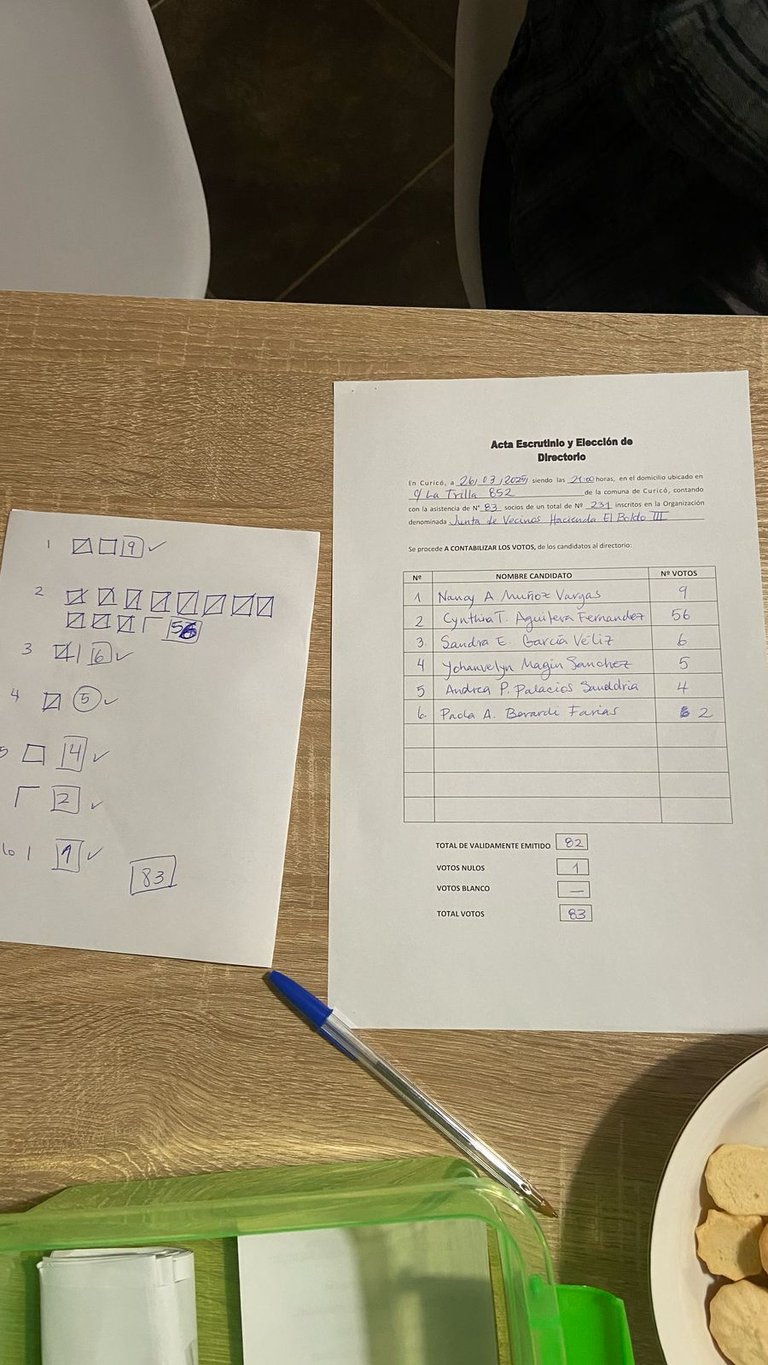 Acta Escrutinio y Elección de
Directorio
En Curicó, a 26/03/2025, siendo las 21:00 horas, en el domicilio ubicado en
C/ La Trilla 852 de la comuna de Curicó, contando
con la asistencia de N° 83 socios de un total de N° 231 inscritos en la Organización
denominada Junta de Vecinos Hacienda El Boldo III
Se procede A CONTABILIZAR LOS VOTOS, de los candidatos al directorio:
N° NOMBRE CANDIDATO N° VOTOS
1 Nancy A Muñoz Vargas 9
2 Cynthia T. Aguilera Fernandez 56
3. Sandra E. García Véliz 6
4 Ychanvelyn Magin Sanchez 5
5 Andrea P. Palacios 4
6. Paola A. Berardi Farias 2
TOTAL DE VALIDAMENTE EMITIDO 82
VOTOS NULOS 1
VOTOS BLANCO —
TOTAL VOTOS 83
1 9
2
56
3 6
4 5
5 4
2
1
83